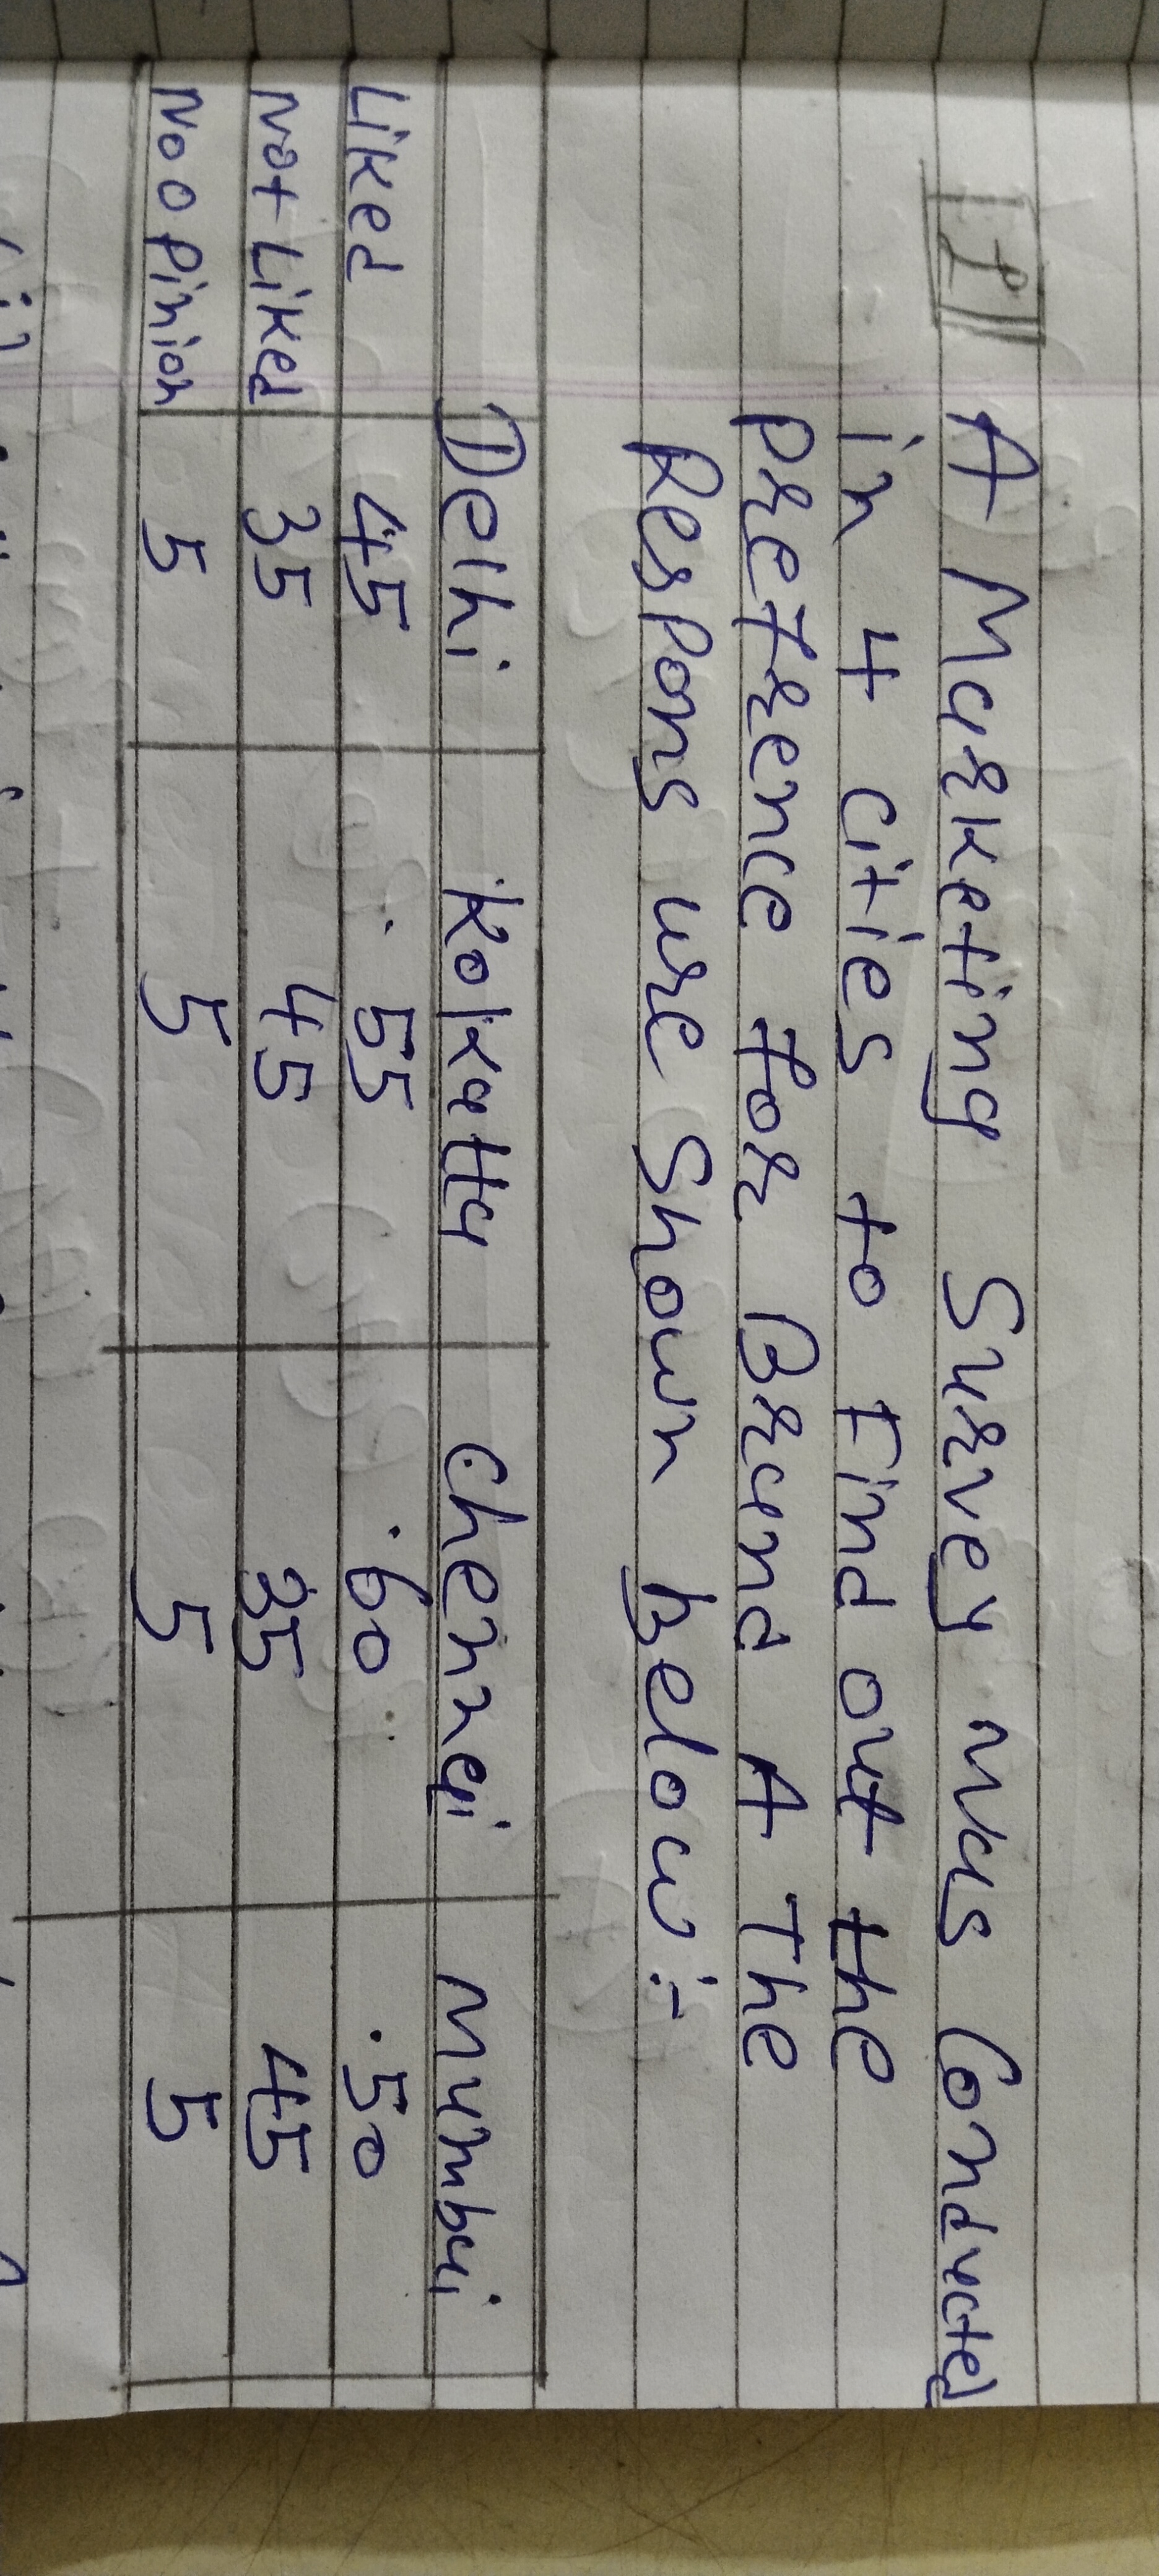 A Marketing Survey was Conducted
in 4 cities to Find out the
prefrence for Brand A The
Respons are Shown below :-
Delhi Kolkatta Chennai Mumbai
Liked 45 55 60 50
Not Liked 35 45 35 45
No opinion 5 5 5 5